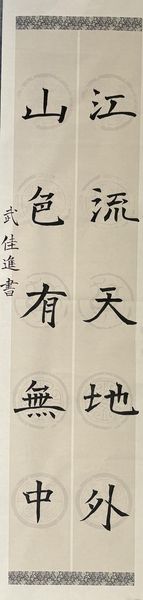 江流天地外
山色有無中
武佳進書